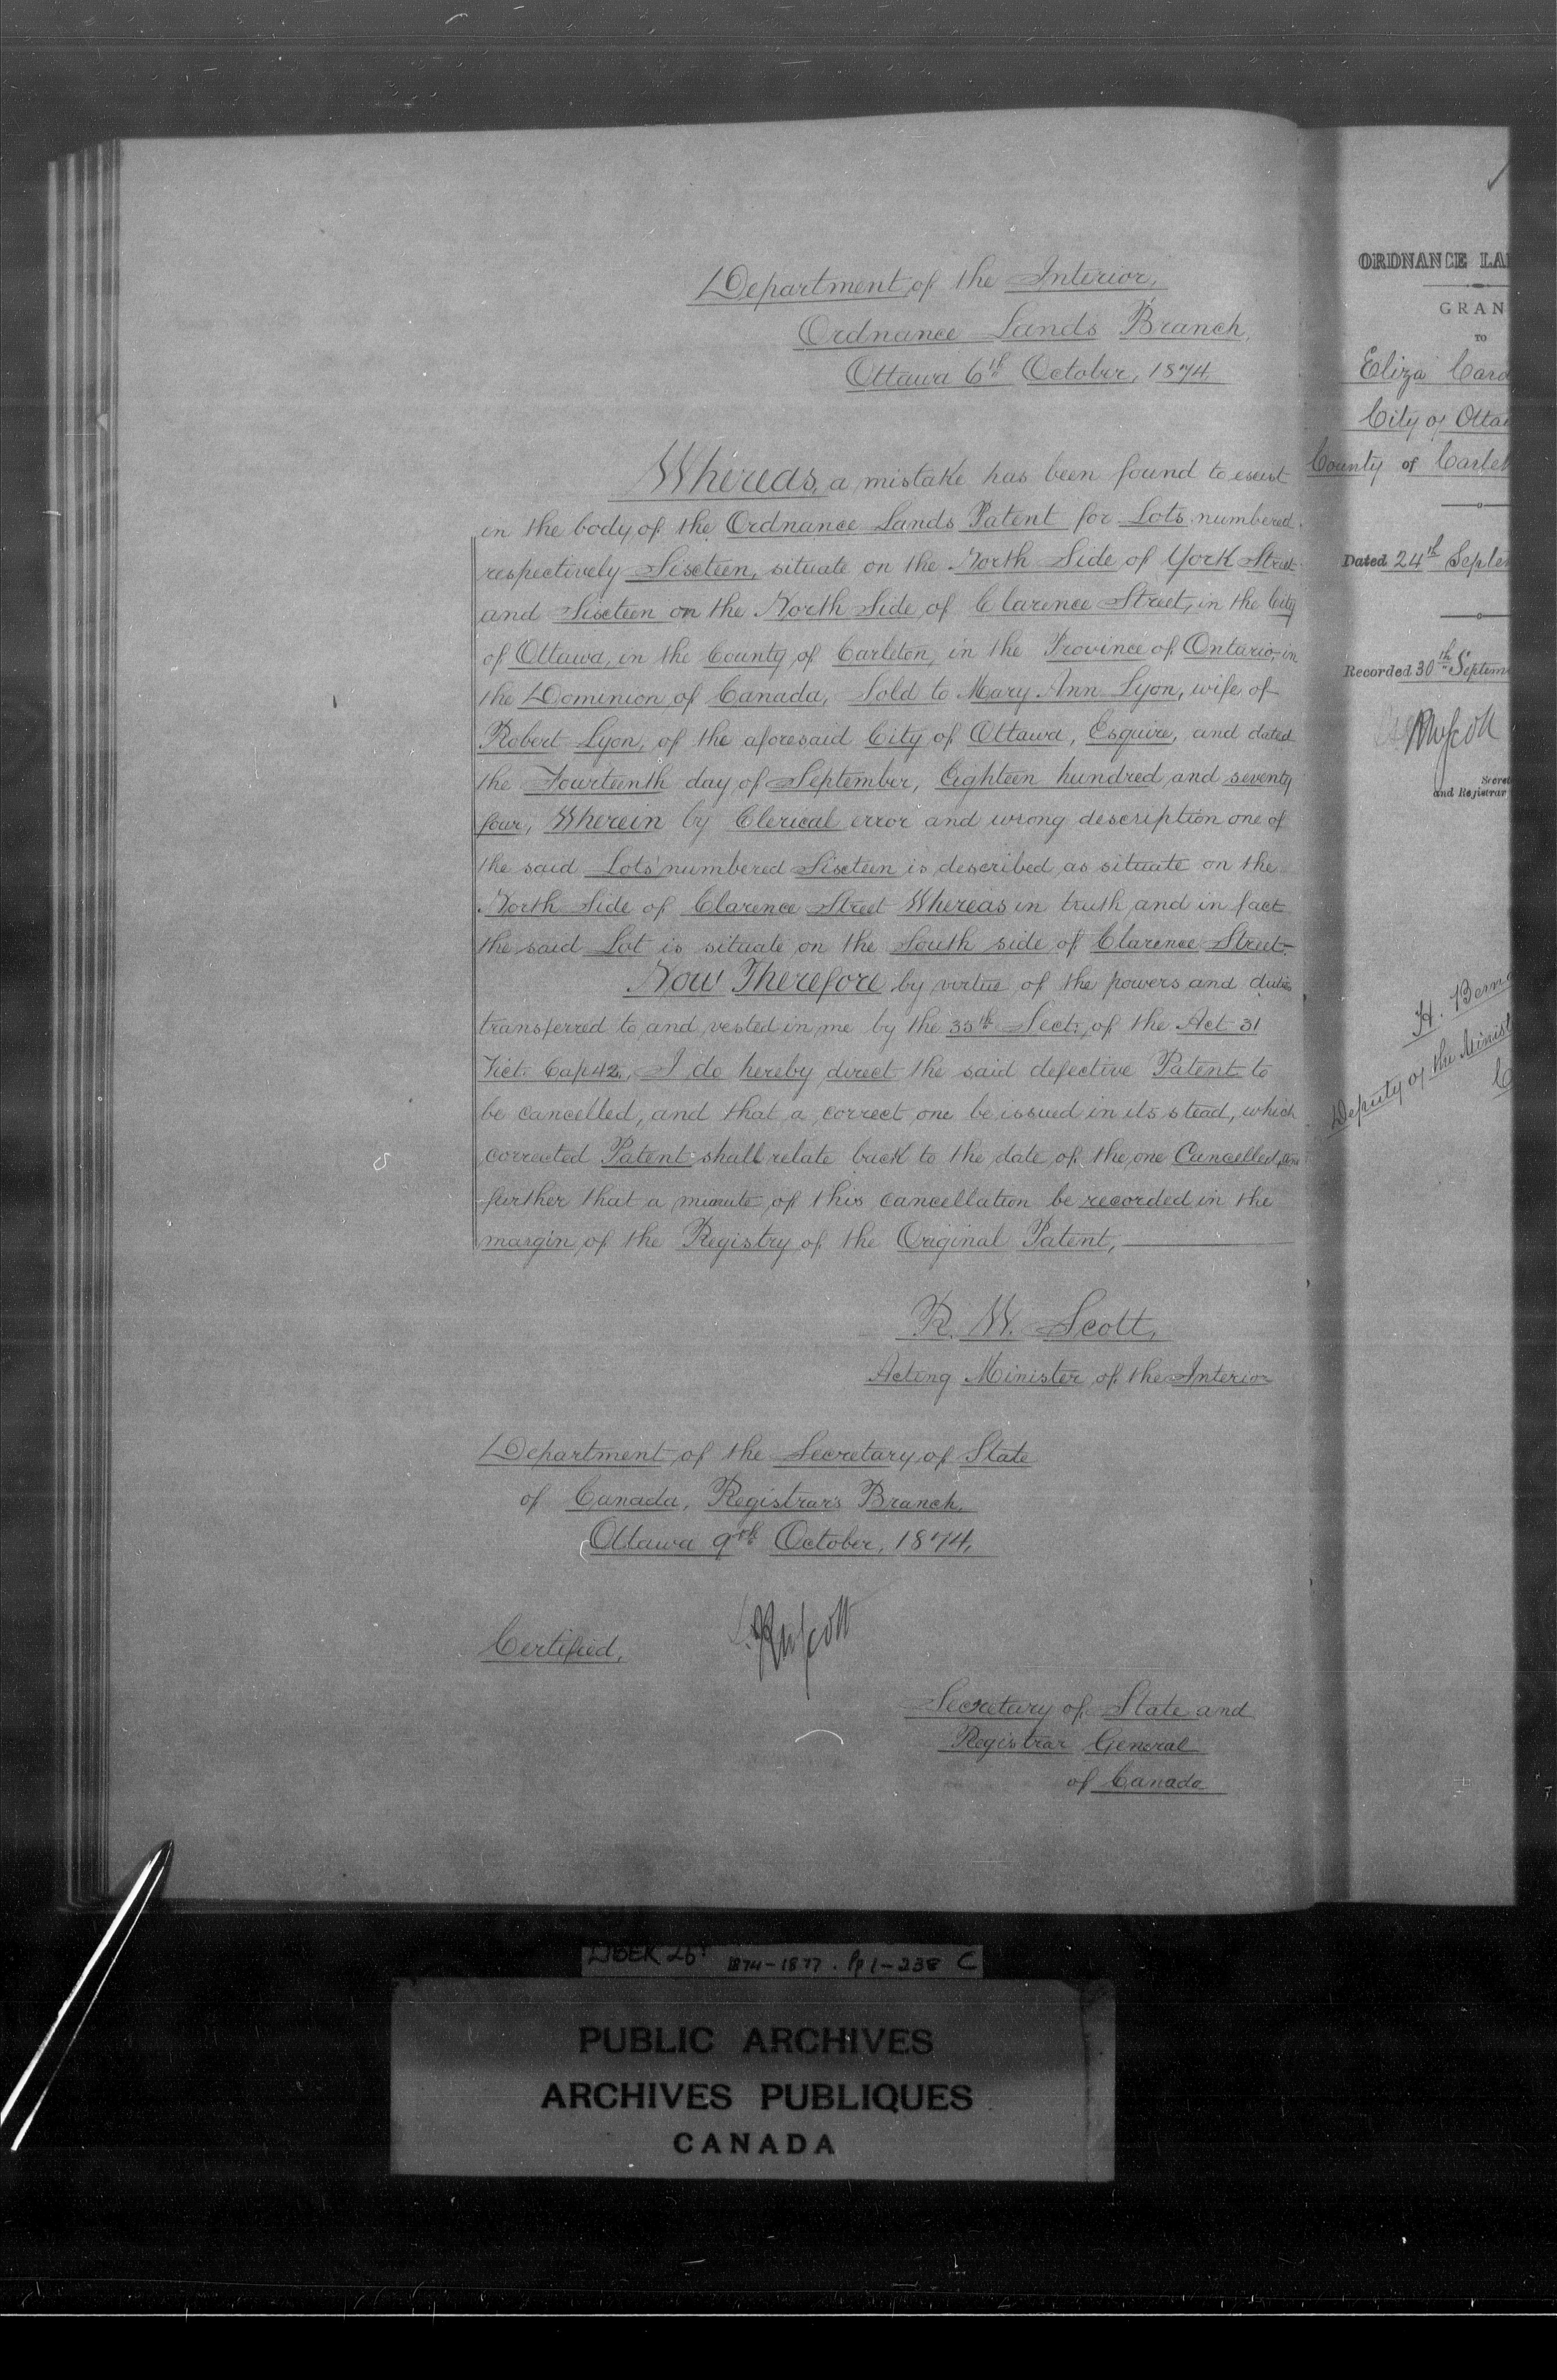 Department of the Interior,
Ordnance Lands Branch,
Ottawa 6th October, 1874.
Whereas, a mistake has been found to exist
in the body of the Ordnance Lands Patent for Lots numbered
respectively Sixteen, situate on the North Side of York Street
and Sixteen on the North Side of Clarence Street, in the City
of Ottawa, in the County of Carleton, in the Province of Ontario, in
the Dominion of Canada, Sold to Mary Ann Lyon, wife of
Robert Lyon, of the aforesaid City of Ottawa, Esquire, and dated
the Fourteenth day of September, Eighteen hundred and seventy
four, Wherein by Clerical error and wrong description one of
the said Lots numbered Sixteen is described as situate on the
North Side of Clarence Street Whereas in truth and in fact
the said Lot is situate on the South side of Clarence Street.
Now Therefore by virtue of the powers and duties
transferred to and vested in me by the 35th Sect. of the Act 31
Vict. Cap 42, I do hereby direct the said defective Patent to
be cancelled, and that a correct one be issued in its stead, which
corrected Patent shall relate back to the date of the one Cancelled, and
further that a minute of this cancellation be recorded in the
margin of the Registry of the Original Patent,
R. W. Scott,
Acting Minister of the Interior
Department of the Secretary of State
of Canada, Registrar's Branch.
Ottawa 9th October, 1874.
Certified,
RWScott
Secretary of State and
Registrar General
of Canada
ORDNANCE LA
GRAN
TO
Eliza Car
City of Otta
County of Carlet
Dated 24th Septe
Recorded 30th Septem
RWScott
Secret
and Registrar
H. Berna
Deputy of the Minist
LIBER 25
1874-1877. Pp 1-238 C
PUBLIC ARCHIVES
ARCHIVES PUBLIQUES
CANADA